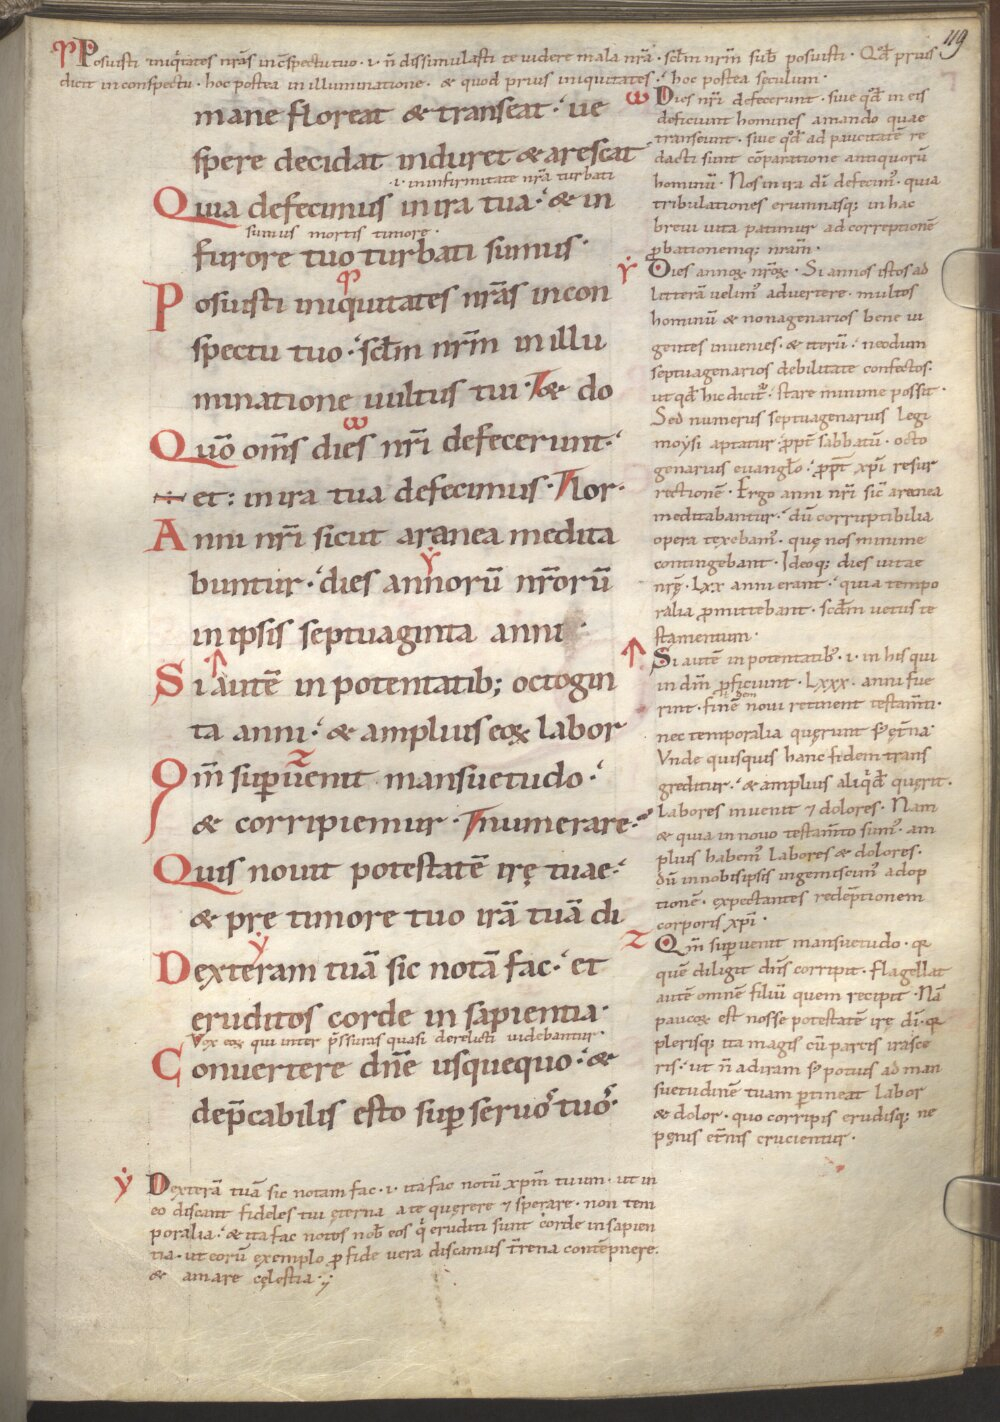 119
Posuisti iniq̇tates nr̄as inc̄spectu tuo · i · n̄ dissimulasti te videre mala nr̄a · sc̄lm nr̄m sub posuisti · Qđ prius
dicit in conspectu · hoc postea in illuminatione · & quod prius iniquitates · hoc postea seculum ·
mane floreat & transeat · ue
spere decidat induret & arescat
· i · in infirmitate nr̄a turbati
Quia defecimus in ira tua · & in
sumus mortis timore ·
furore tuo turbati sumus ·
Posuisti iniquitates nr̄as in con
spectu tuo · sc̄lm nr̄m in illu
minatione uultus tui · & do
Quō om̄s dies nr̄i defecerunt ·
÷ et : in ira tua defecimus · lor ·
Anni nr̄i sicut aranea medita
buntur · dies annorū nr̄orū
in ipsis septuaginta anni ·
Si autē in potentatib; octogin
ta anni · & amplius eoꝝ labor
Qm̄ supuenit mansuetudo ·
& corripiemur · numerare ·
Quis nouit potestatē irę tuae ·
& prę timore tuo irā tuā di
Dexteram tuā sic notā fac · et
eruditos corde in sapientia ·
Vox eoꝝ qui inter p̄ssuras quasi derelicti uidebantur ·
Conuertere dn̄e usquequo · &
dep̄cabilis esto sup seruos tuos ·
ω Dies nr̄i defecerunt · siue qđ in eis
deficiunt homines amando quae
transeunt · siue qđ ad paucitatē re
dacti sunt cōparatione antiquorū
hominū · Nos in ira dī defecim⁊ · quia
tribulationes erumnasq; in hac
breui uita patimur ad correptionē
ꝓbationemq; nram̄ ·
Dies annoꝝ nr̄oꝝ · Si annos istos ad
litterā uelim⁊ aduertere · multos
hominū & nonagenarios bene ui
gentes inuenies · & iterū · necdum
septuagenarios debilitate confectos ·
ut qđ hic dicit᷑ · stare minime possit ·
Sed numerus septuagenarius legi
moysi aptatur · ꝓpt̄ sabbatū · octo
genarius euanḡlo · ꝓpt̄ xp̄i resur
rectionē · Ergo anni nr̄i sic̄ aranea
meditabantur · dū corruptibilia
opera texebam⁊ · quę nos minime
contingebant · Ideoq; dies uitae
nr̄ę · Lxx anni erant · quia tempo
ralia promittebant · scđm uetus te
stamentum ·
Si autē in potentatib⁊ · i · in his qui
in dn̄o ꝓficiunt · Lxxx · anni fue
rint · finē noui retinent testam̄ti ·
nec temporalia quęrunt s; et̄na ·
Vnde quisquis hanc fidem trans
greditur · & amplius aliq̇đ quęrit ·
Labores inuenit ⁊ dolores · Nam
& quia in nouo testam̄to sum⁊ · am
plius habem⁊ labores & dolores ·
dū in nobis ipsis ingemiscim⁊ adop
tionē · expectantes redēptionem
corporis xp̄i ·
Z Qm̄ supuenit mansuetudo · q̄
quē diligit dn̄s corripit · flagellat
autē omnē filiū quem recipit · Nā
paucoꝝ est nosse potestatē irę dī · q̄
plerisq; ita magis cū parcis irasce
ris · ut n̄ ad iram s; potius ad man
suetudinē tuam ꝑtineat labor
& dolor · quo corripis erudisq; ne
pęnis et̄nis crucientur ·
ẏ Dexterā tuā sic notam fac · i · ita fac notū xp̄m tuum · ut in
eo discant fideles tui ęterna a te quęrere ⁊ sperare · non tem
poralia · & ita fac notos nob̄ eos q̇ eruditi sunt corde in sapien
tia · ut eorū exemplo ꝓ fide uera discamus t̄rena contēpnere ·
& amare cęlestia ·